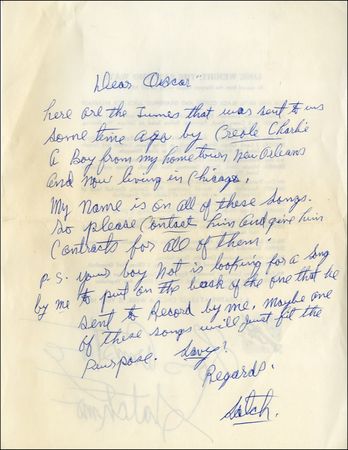 Dear Oscar"
here are the Tunes that was sent to us
some time ago by Creole Charlie
A Boy from my home town New Orleans
and now living in Chicago.
My Name is on all of these songs.
so please Contact him and give him
Contracts for all of them.
P.S. your boy Nat is looking for a song
by me to put on the back of the one that he
sent to Record by me, maybe one
of these songs will just fit the
Paurpose. Savvy?
Regards.
Satch.